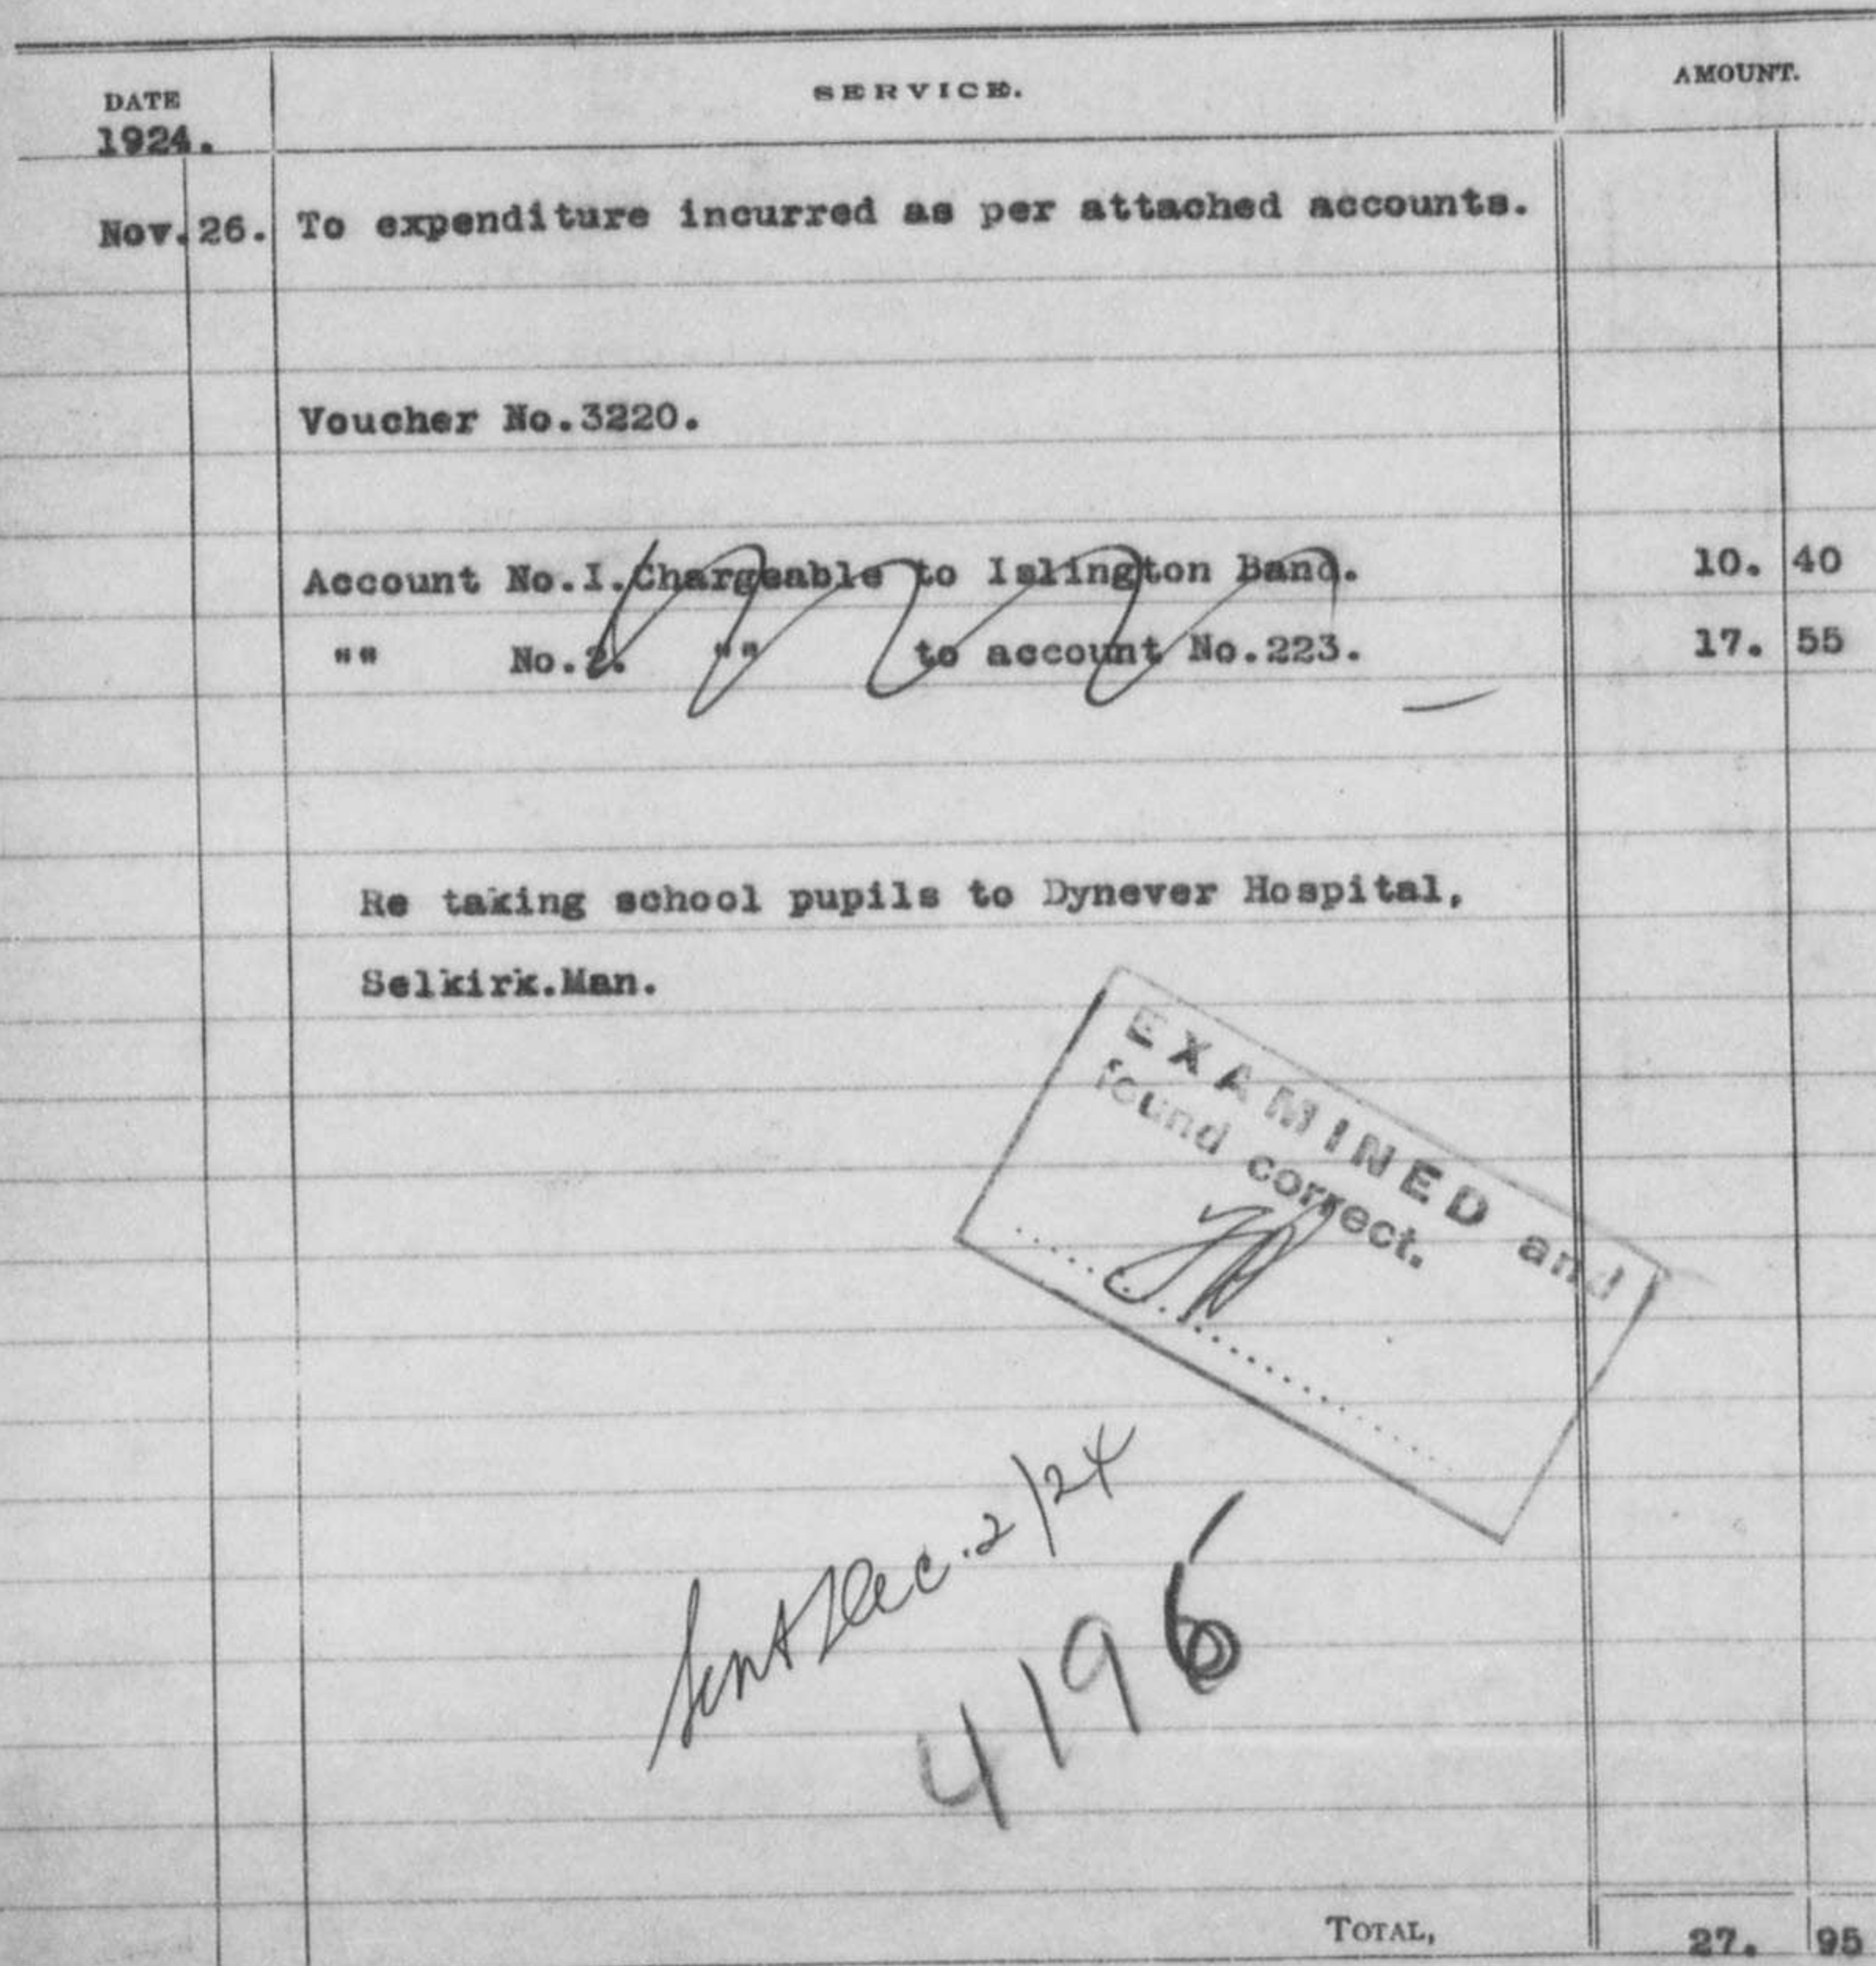 DATE SERVICE. AMOUNT.
1924.
Nov. 26. To expenditure incurred as per attached accounts.
Voucher No.3220.
Account No.I.Chargeable to Islington Band. 10. 40
"" No.2. "" to account No.223. 17. 55
Re taking school pupils to Dynever Hospital,
Selkirk.Man.
EXAMINED and
found correct.
Sent Dec. 2/24
4196
TOTAL, 27. 95